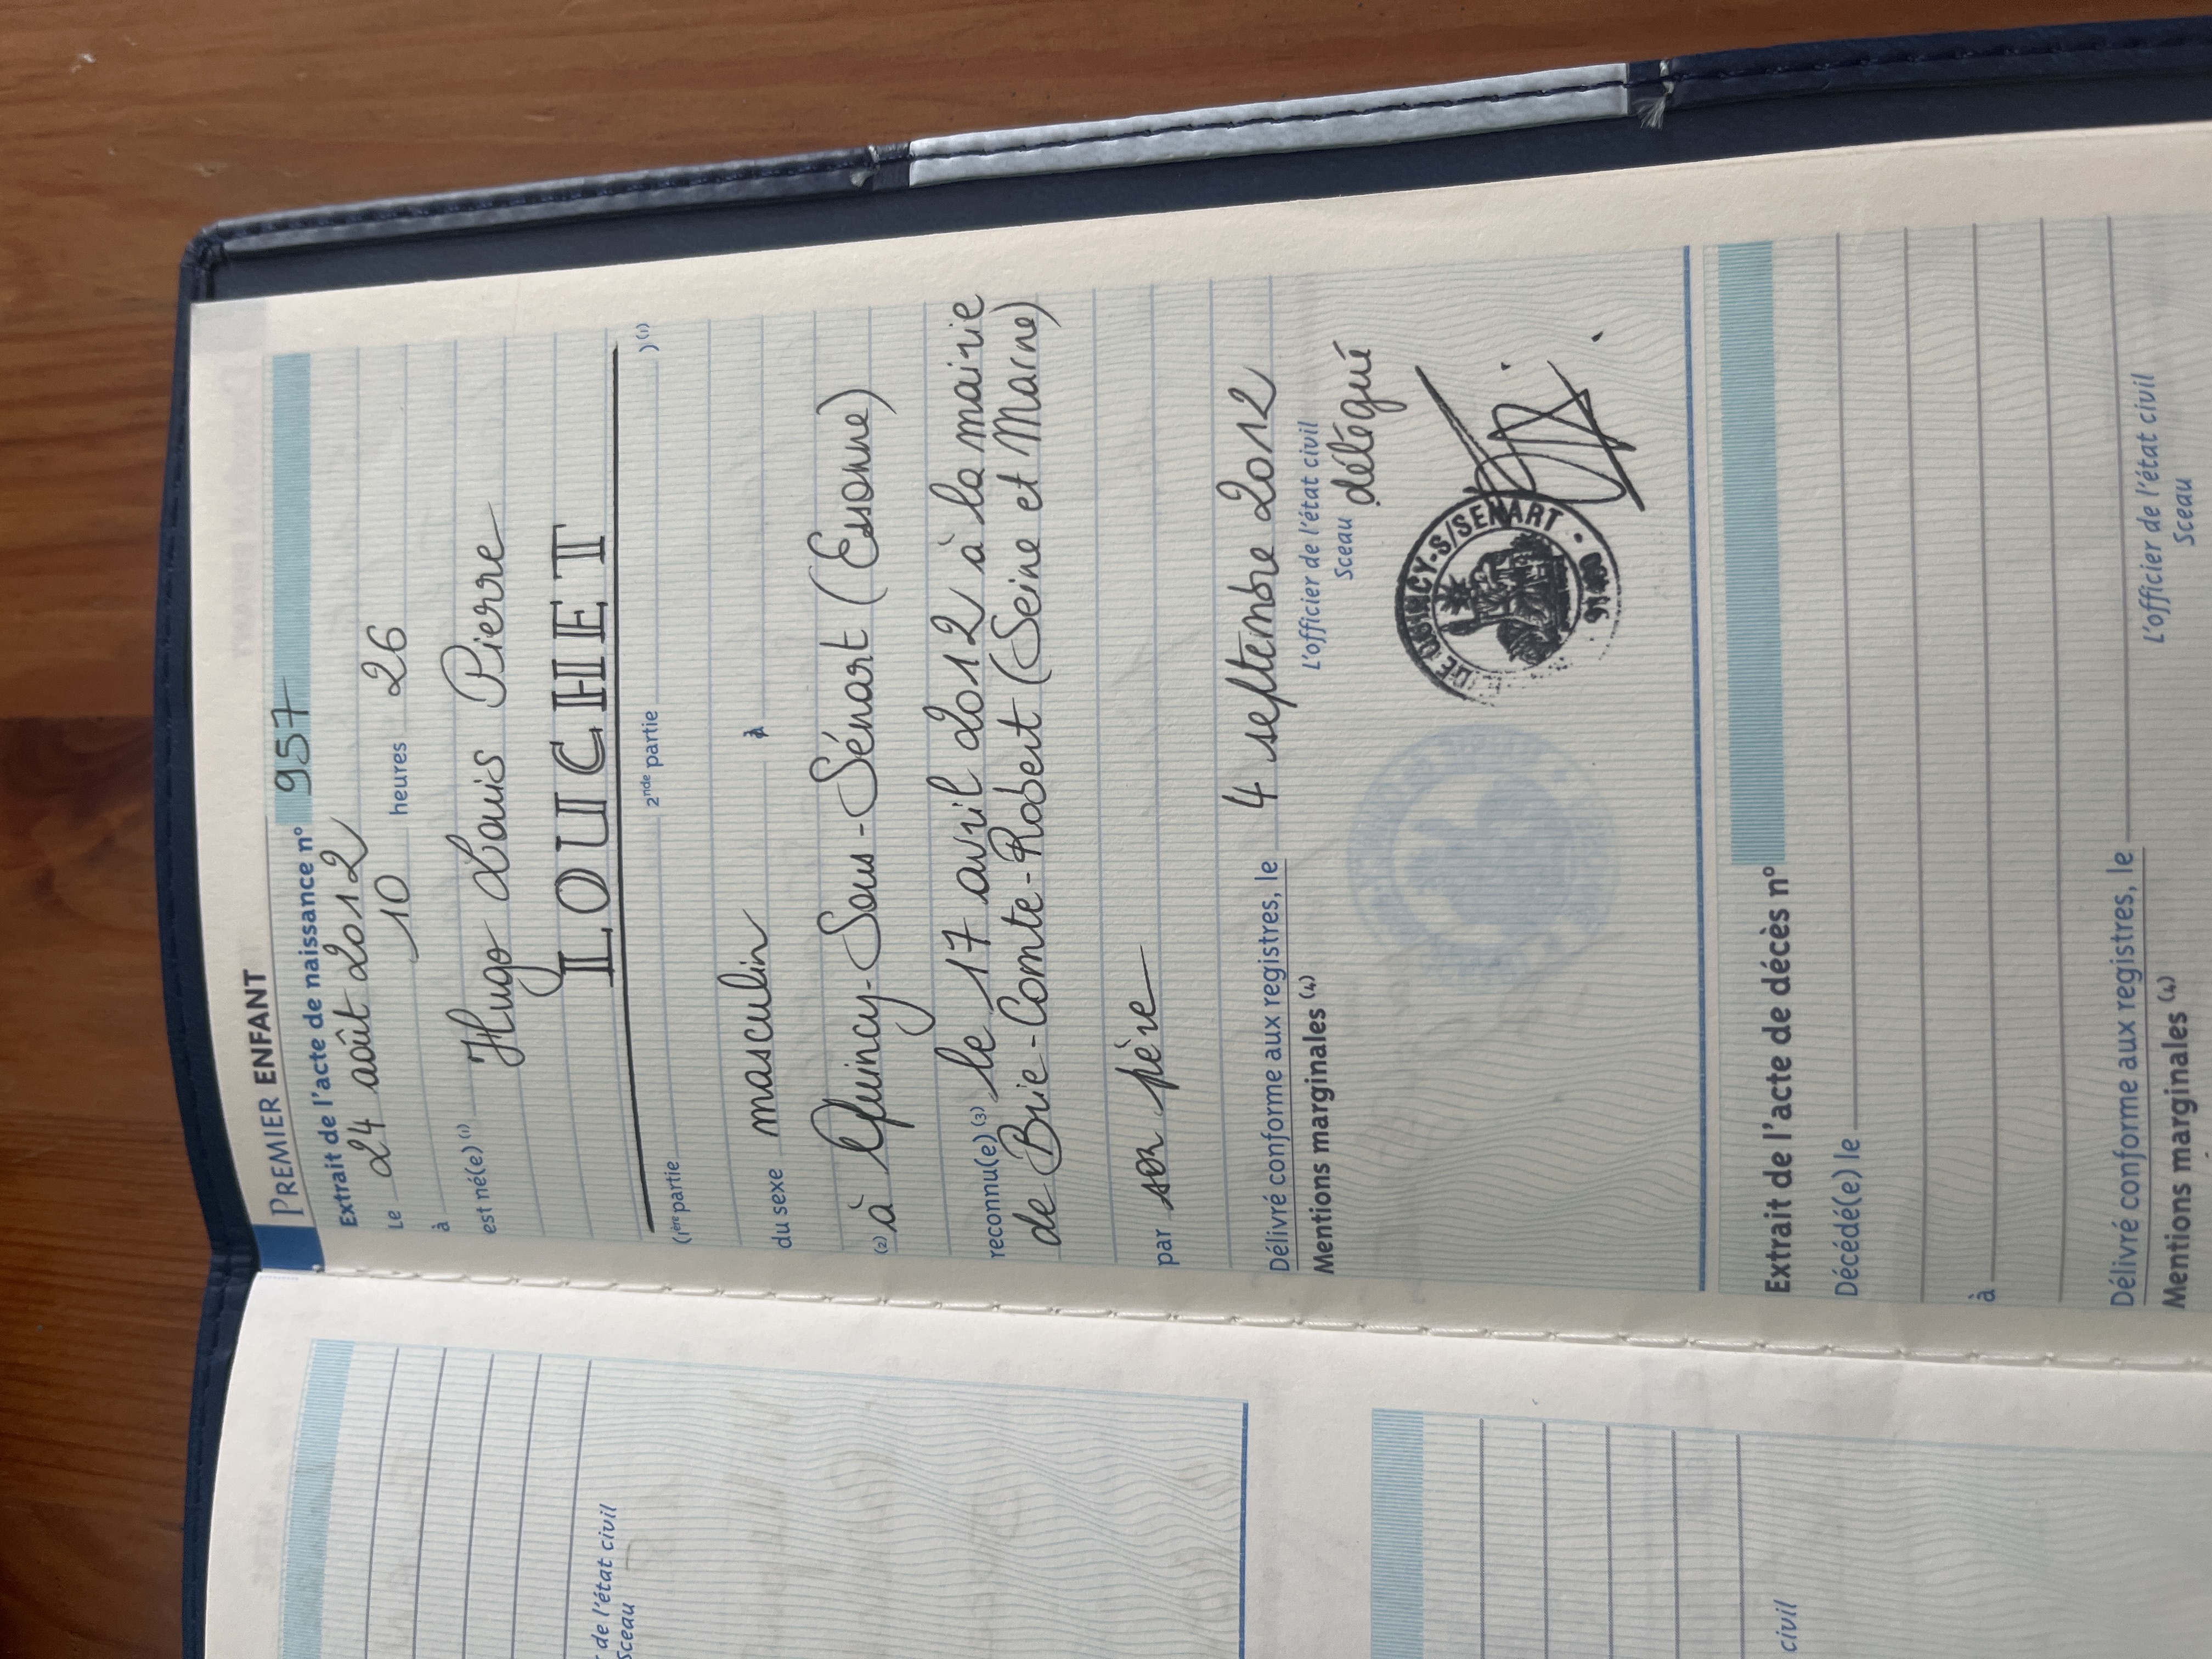 PREMIER ENFANT
Extrait de l'acte de naissance n° 957
Le 24 août 2012
à 10 heures 26
est né(e) (1) Hugo Louis Pierre
LOUCHET
(1ère partie 2nde partie )(1)
du sexe masculin à
(2) à Quincy-Sous-Sénart (Essonne)
reconnu(e) (3) le 17 avril 2012 à la mairie
de Brie-Comte-Robert (Seine et Marne)
par son père
Délivré conforme aux registres, le 4 septembre 2012
Mentions marginales (4)
L'officier de l'état civil
Sceau délégué
DE QUINCY-S/SENART
Extrait de l'acte de décès n°
Décédé(e) le
à
Délivré conforme aux registres, le
Mentions marginales (4)
L'officier de l'état civil
Sceau
de l'état civil
Sceau
civil